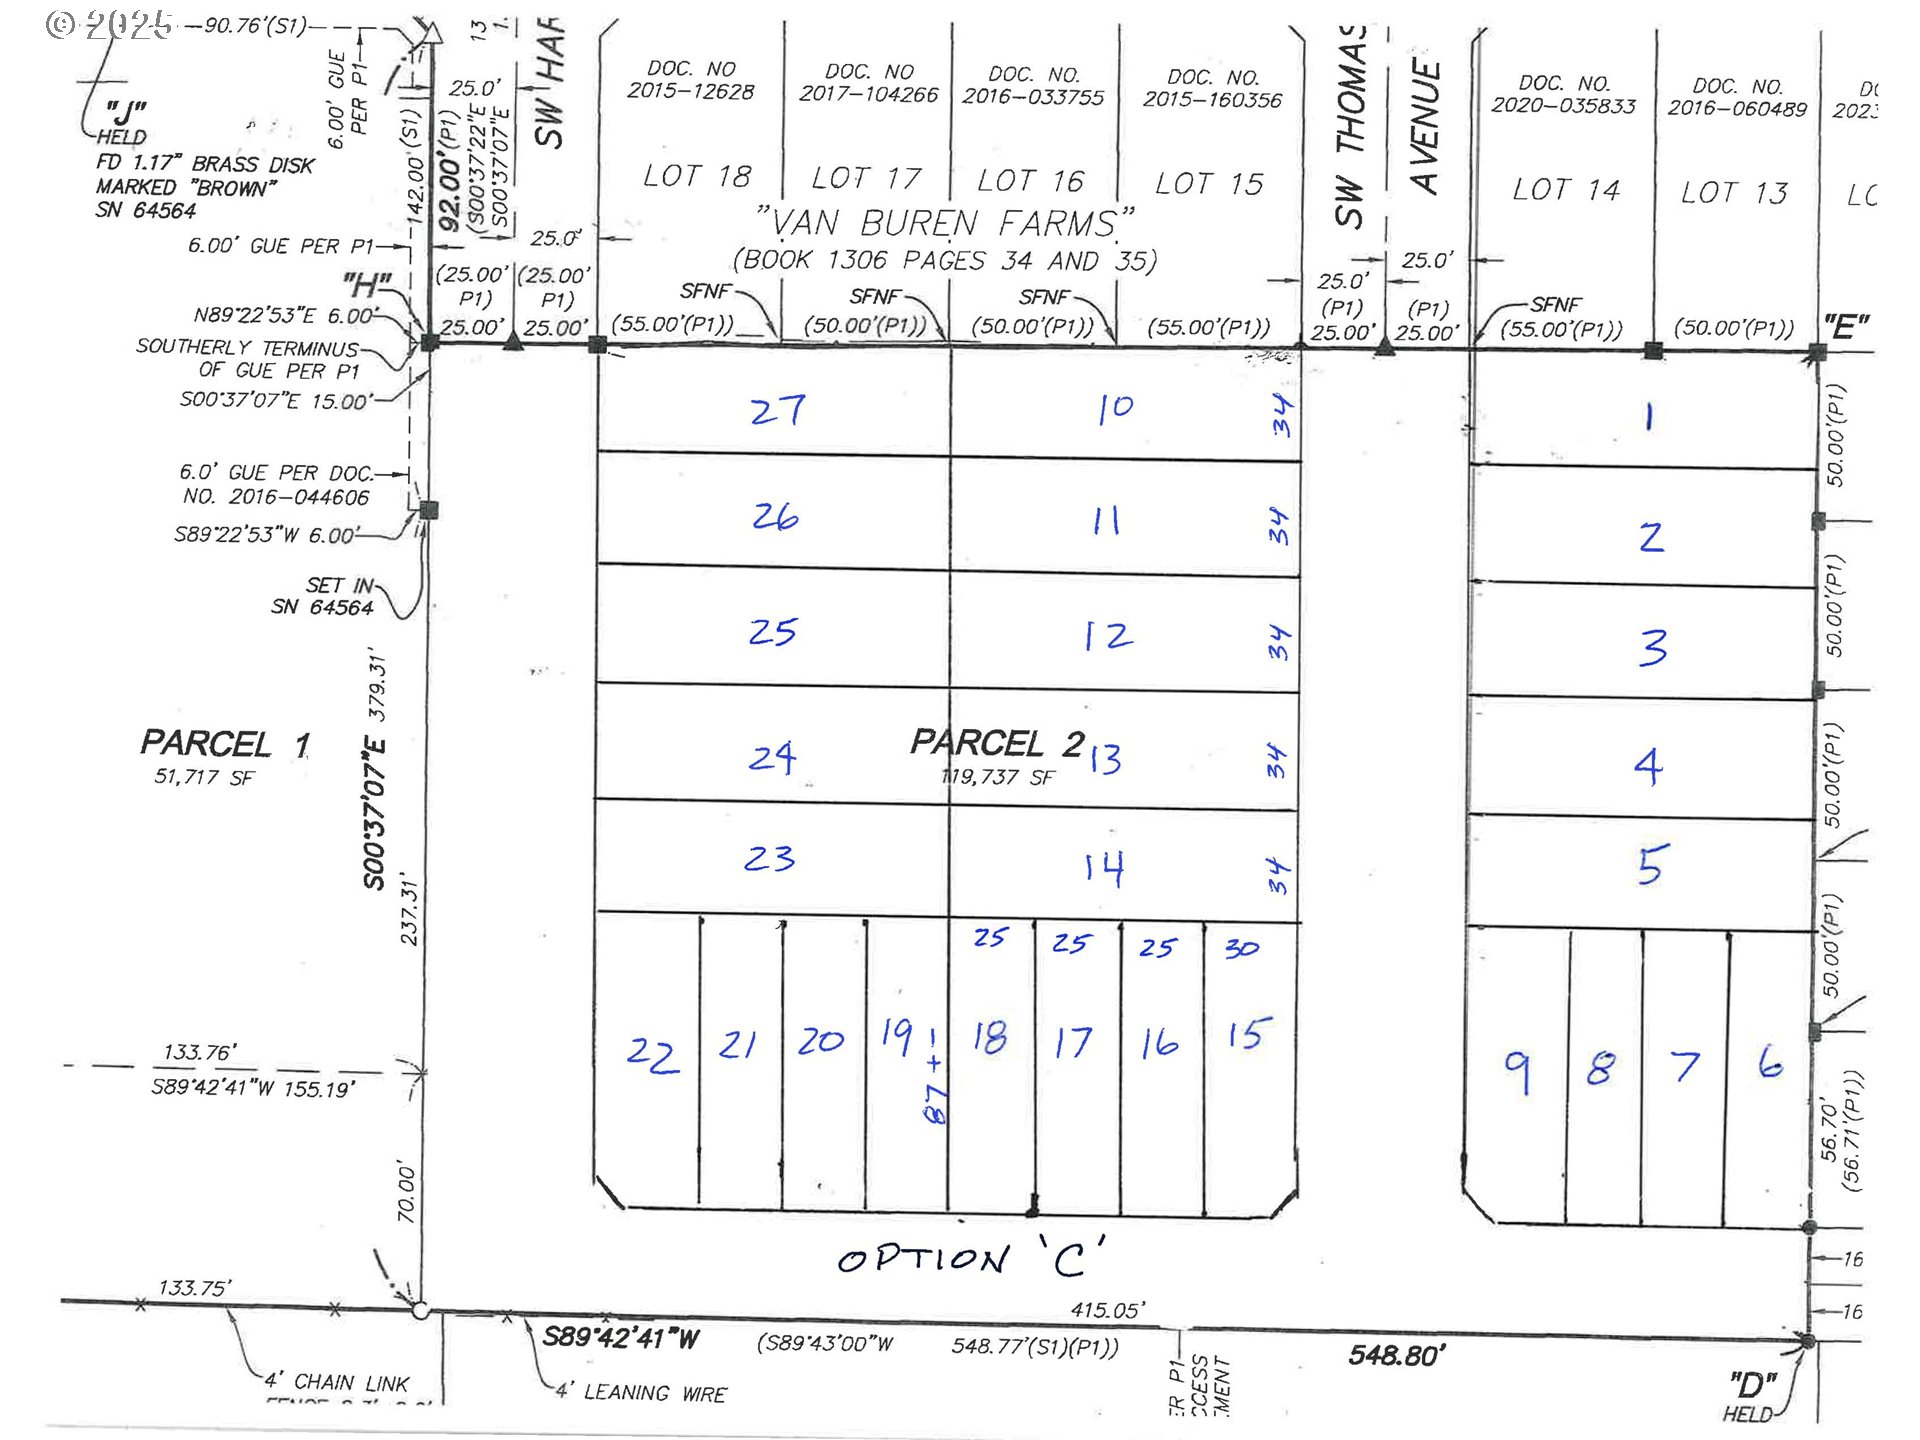 © 2025
90.76'(S1)
6.00' GUE
PER P1
25.0'
13
SW HAR
142.00'(S1)
92.00'(P1)
(S00°37'22"E
S00°37'07"E
"J"
HELD
FD 1.17" BRASS DISK
MARKED "BROWN"
SN 64564
DOC. NO
2015-12628
DOC. NO
2017-104266
DOC. NO.
2016-033755
DOC. NO.
2015-160356
SW THOMAS
AVENUE
DOC. NO.
2020-035833
DOC. NO.
2016-060489
2023
LOT 18
LOT 17
LOT 16
LOT 15
LOT 14
LOT 13
"VAN BUREN FARMS"
(BOOK 1306 PAGES 34 AND 35)
6.00' GUE PER P1
25.0'
25.0'
25.0'
"H"
(25.00'
P1)
25.00'
(25.00'
P1)
25.00'
SFNF
SFNF
SFNF
SFNF
(55.00'(P1))
(50.00'(P1))
(50.00'(P1))
(55.00'(P1))
(P1)
25.00'
(P1)
25.00'
(55.00'(P1))
(50.00'(P1))
"E"
N89°22'53"E 6.00'
SOUTHERLY TERMINUS
OF GUE PER P1
S00°37'07"E 15.00'
6.0' GUE PER DOC.
NO. 2016-044606
S89°22'53"W 6.00'
SET IN
SN 64564
27
10
34
1
50.00'(P1)
26
11
34
2
50.00'(P1)
25
12
34
3
S00°37'07"E 379.31'
PARCEL 1
51,717 SF
PARCEL 2
119,737 SF
24
13
34
4
50.00'(P1)
23
14
34
5
237.31'
50.00'(P1)
25
25
25
30
22
21
20
19
87 +-
18
17
16
15
9
8
7
6
133.76'
S89°42'41"W 155.19'
70.00'
56.70'
(56.71'(P1))
OPTION 'C'
16
16
133.75'
415.05'
S89°42'41"W
(S89°43'00"W
548.77'(S1)(P1))
548.80'
4' CHAIN LINK
4' LEANING WIRE
"D"
HELD